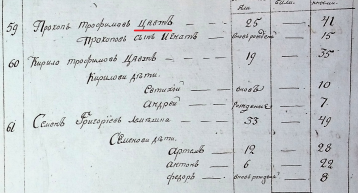 59 Прохопъ Трофимовъ Цвѣтъ 25 41
Прохоповъ сынъ Игнатъ вновьрожденъ 15
60 Кирило Трофимовъ Цвѣтъ 19 35
Кириловы дѣти
Евтихой вновь 10
Андрей рожденые 7
61 Семенъ Григорьевъ 33 49
Семеновы дѣти
Артемъ 12 28
Антонъ 6 22
Федоръ вновьрожденъ 8